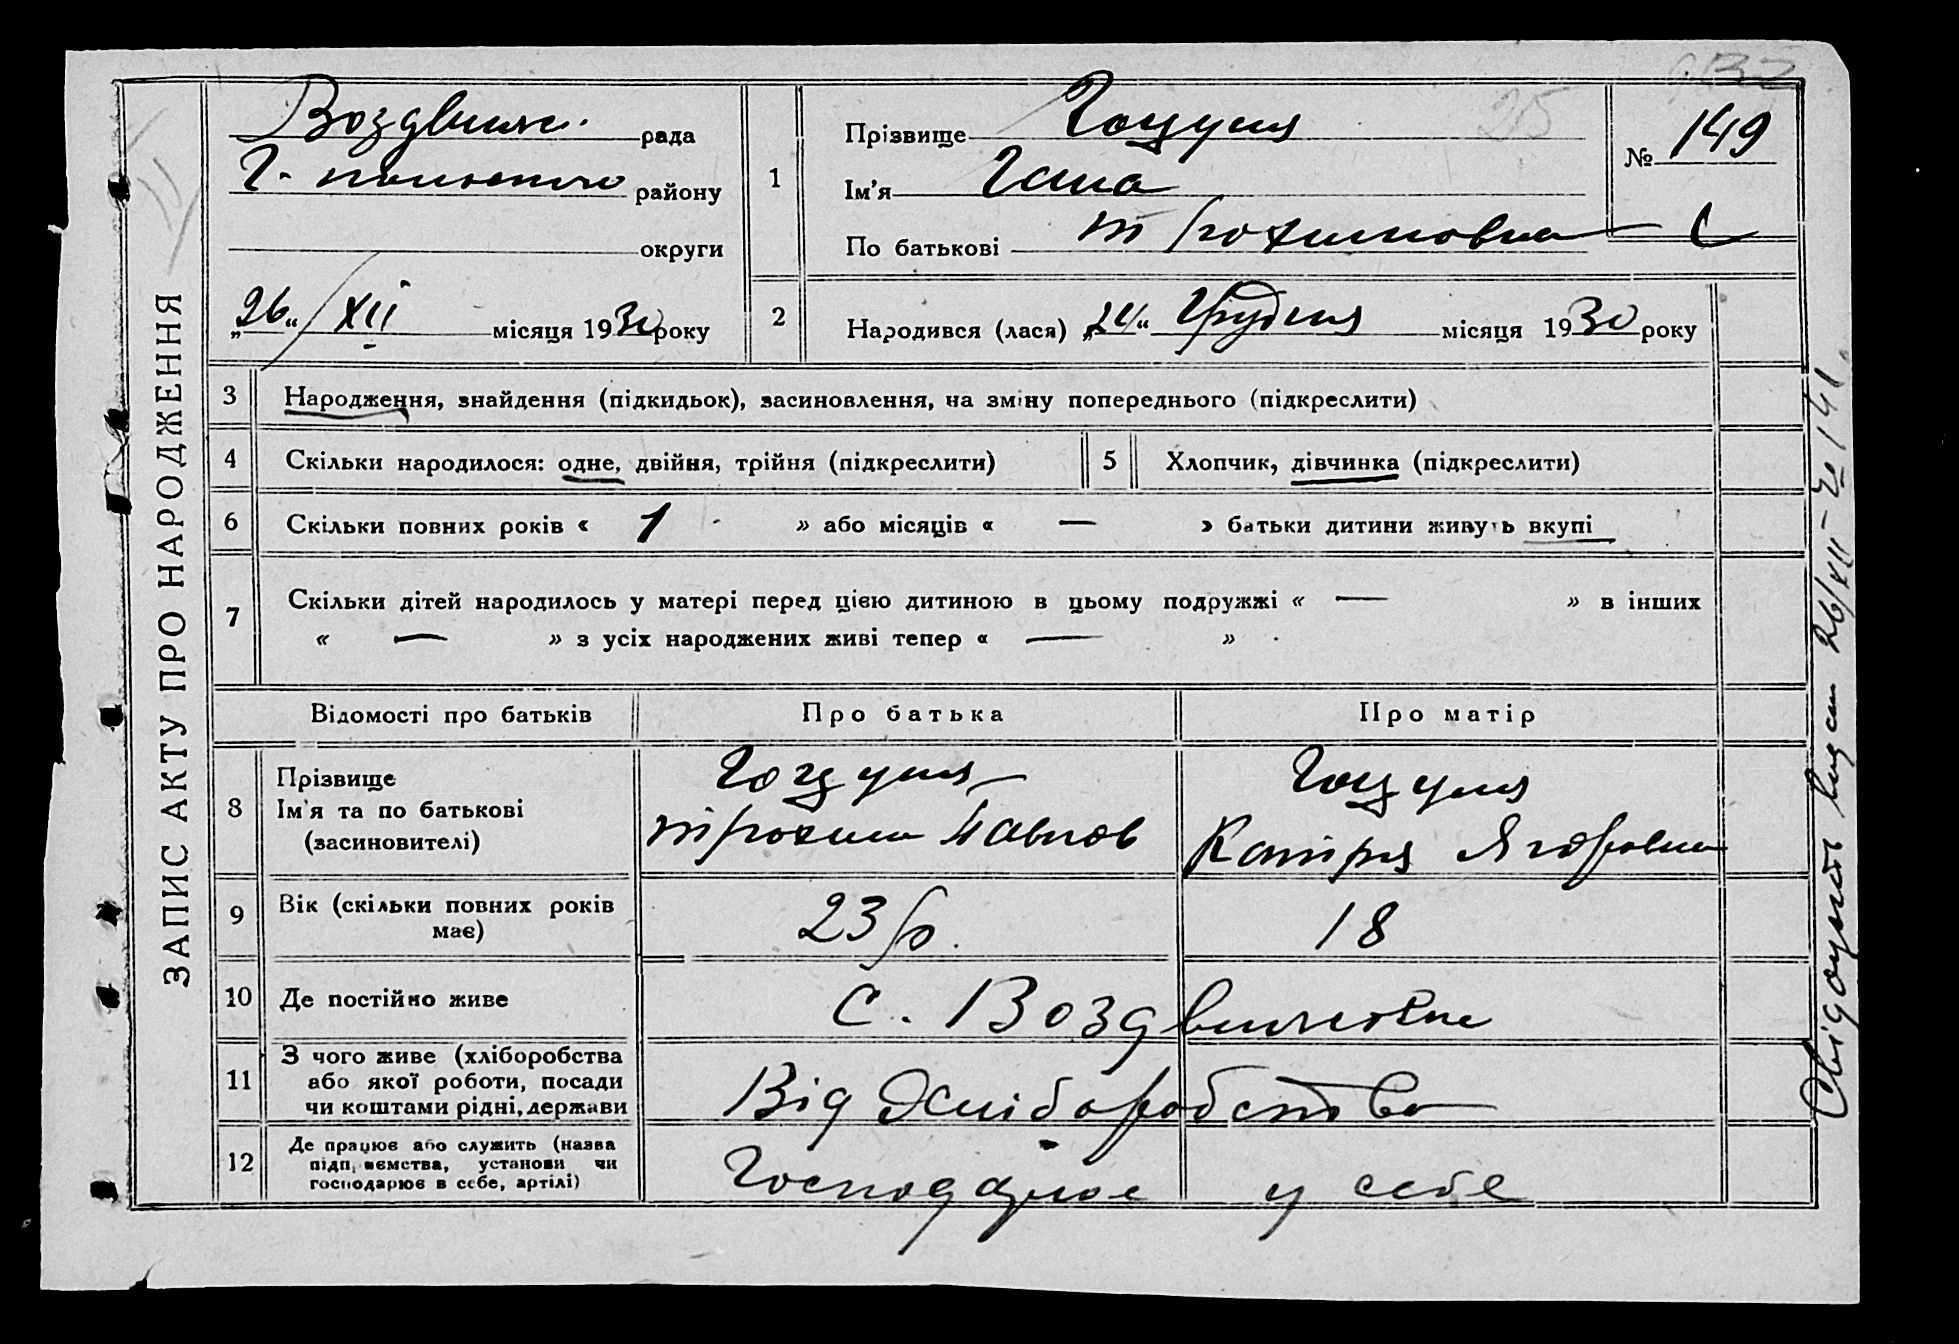 ЗАПИС АКТУ ПРО НАРОДЖЕННЯ
Воздвиж. рада
Г-польського району
округи
„26“ / XII місяця 1930 року
1
Прізвище Гоцуля
Ім'я Гана
По батькові Трохимовна
№ 149
С
25
2
Народився (лася) „24“ Грудня місяця 1930 року
3 Народження, знайдення (підкидьок), засиновлення, на зміну попереднього (підкреслити)
4 Скільки народилося: одне, двійня, трійня (підкреслити)
5 Хлопчик, дівчинка (підкреслити)
6 Скільки повних років « 1 » або місяців « — » батьки дитини живуть вкупі
7 Скільки дітей народилось у матері перед цією дитиною в цьому подружжі « — » в інших
« — » з усіх народжених живі тепер « — »
Відомості про батьків Про батька Про матір
8 Прізвище
Ім'я та по батькові
(засиновителі)
Гоцуля
Трохим Павлов
Гоцуля
Катіря Ягоровна
9 Вік (скільки повних років
має)
23 р. 18
10 Де постійно живе с. Воздвиж
11 З чого живе (хліборобства
або якої роботи, посади
чи коштами рідні, держави
Від Хліборобства
12 Де працює або служить (назва
підприємства, установи чи
господарює в себе, артілі)
Господарює у себе
Свідоцтво видан 26/XII-30